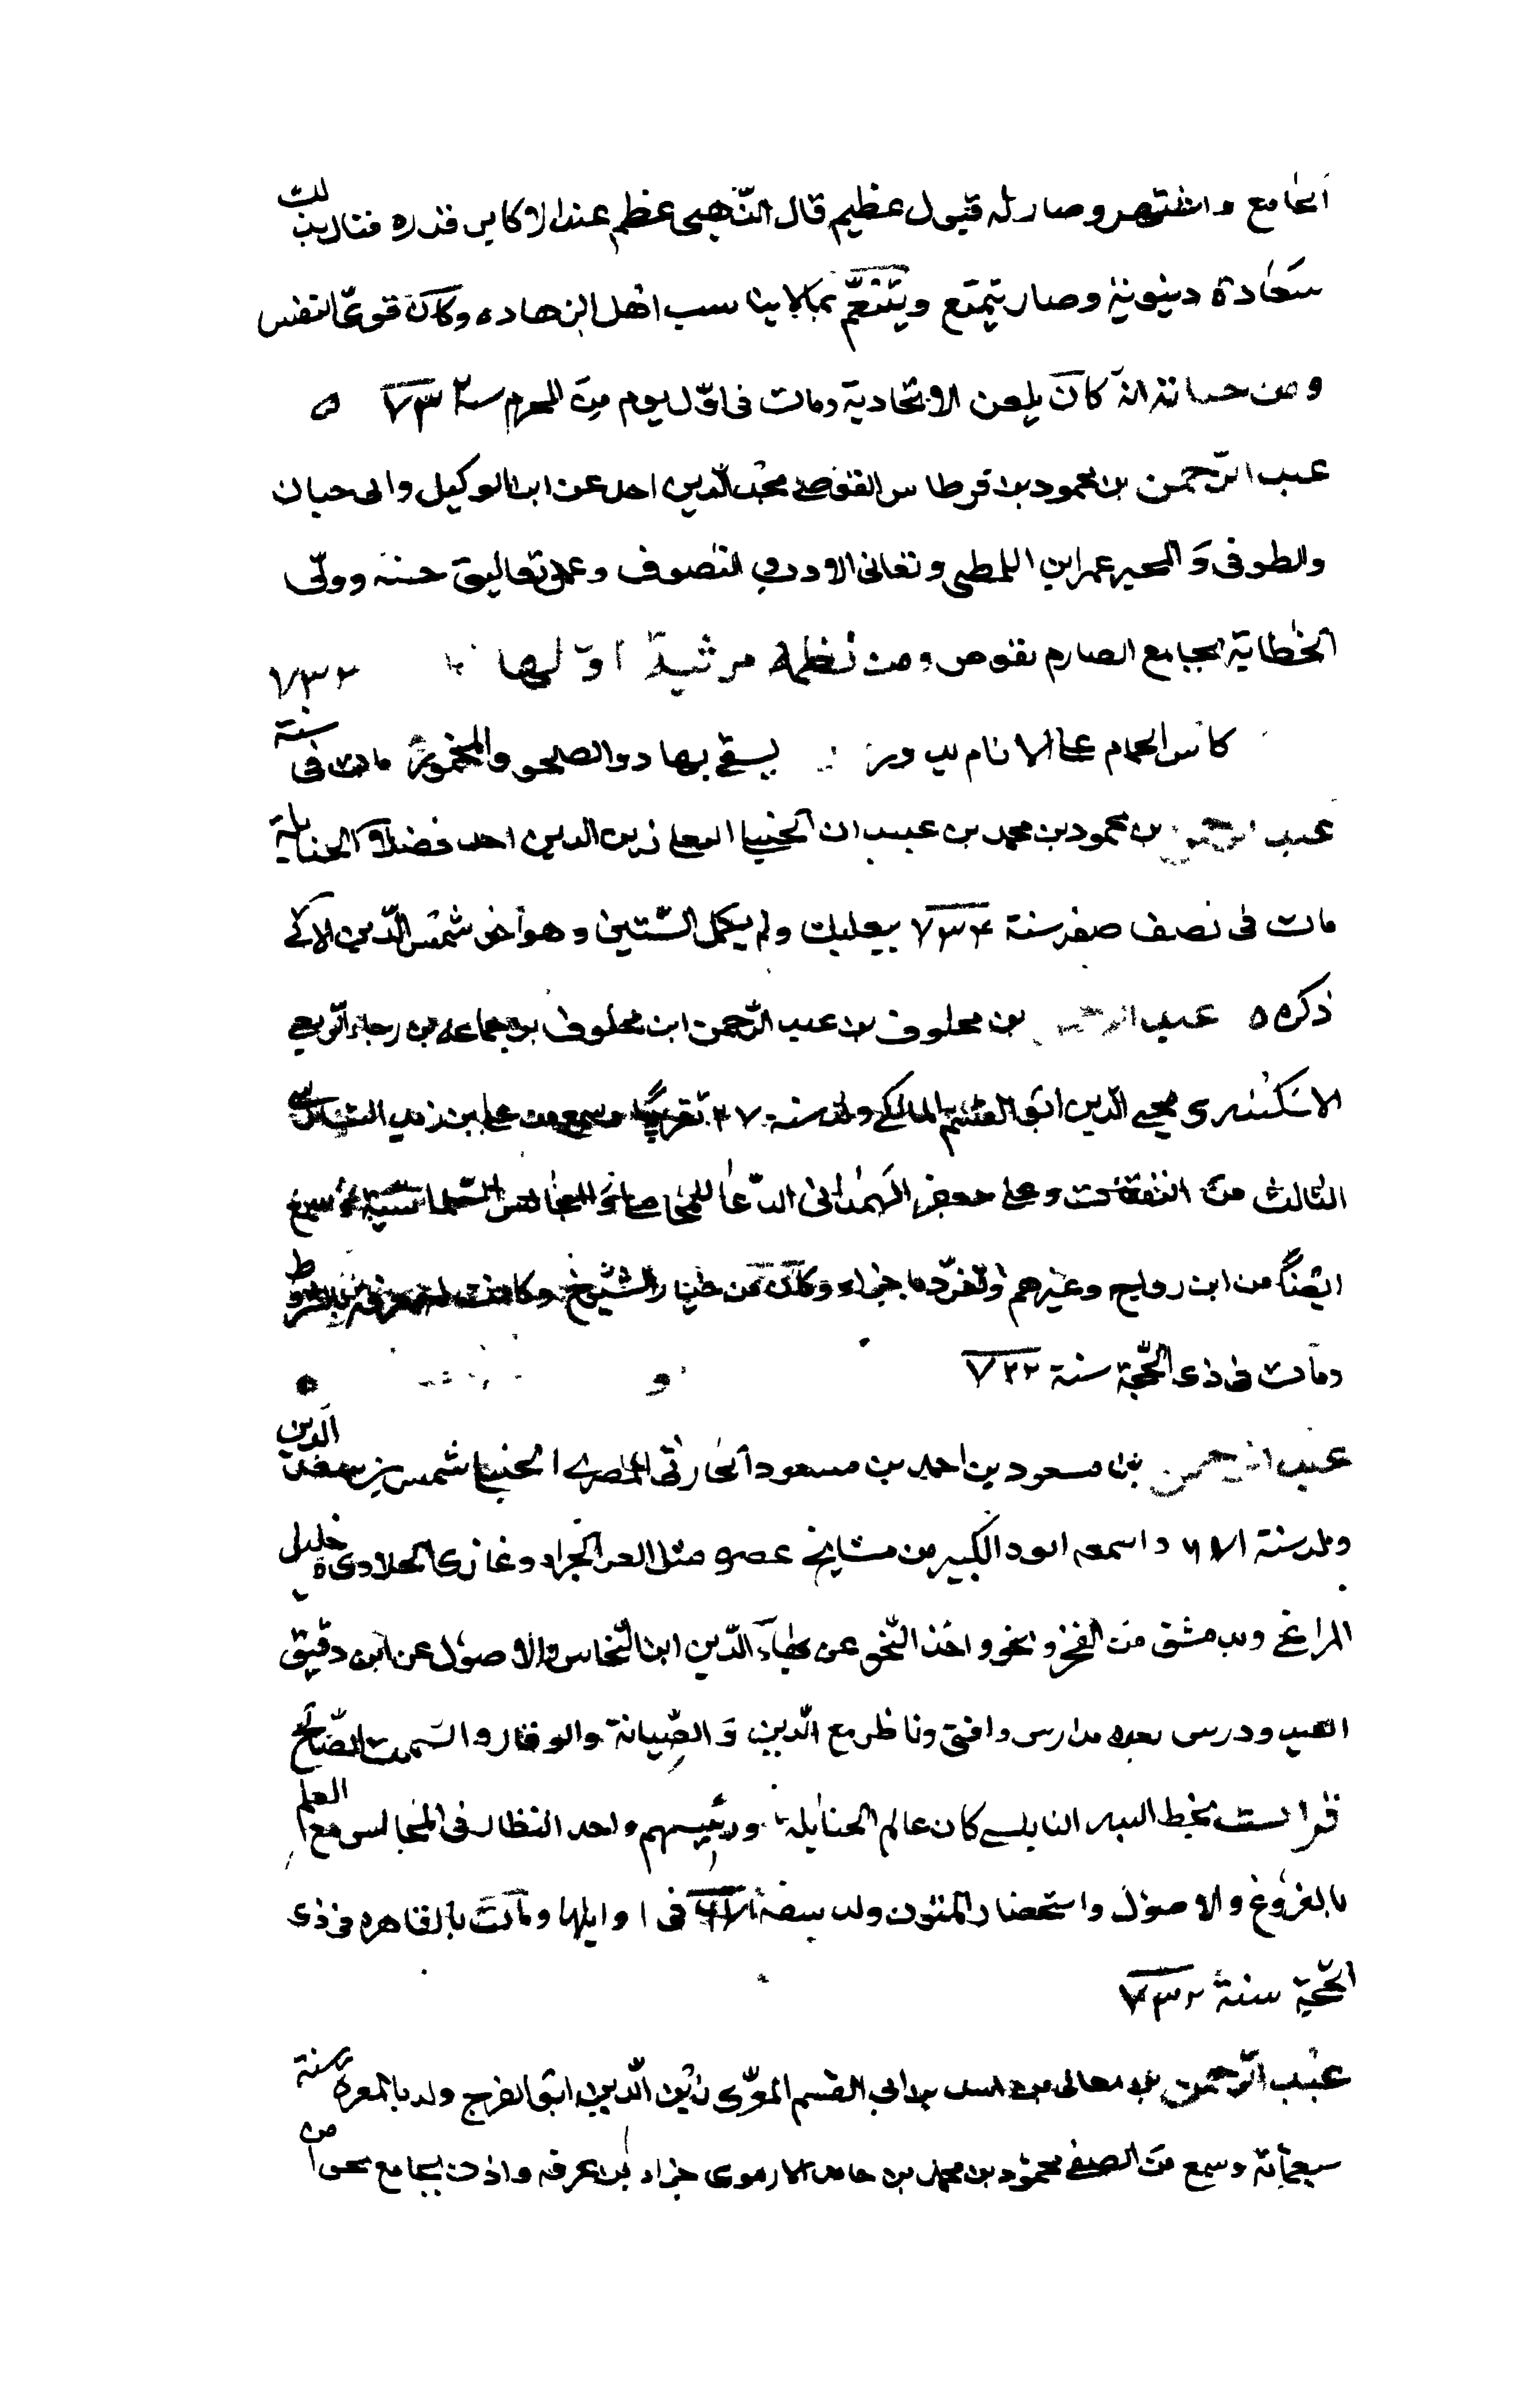 الجامع واشتهر وصار له قبول عظيم قال الذهبى عظم عند الاكابر قدره فنال بذلك
سعادة دينوية وصار يتمتع ويتنعم بما لا يناسب اهل الزهاده وكان قوىّ النفس
ومن حسناته انه كان يلعن الاتحادية ومات فى اوّل يوم من المحرم سنة ٧٣٢ ه
عبد الرّحمن بن محمود بن قرطاس القوصى مجد الدين اخد عن ابن الوكيل وابى حيان
والطوفى وَالمجير عمر ابن اللمطى وتعانى الادب والتصوف وعمل تعاليق حسنه وولّى
الخطابة بجامع الصارم بقوص ومن نظمه مرثية اوّلها
كاس الحمام على الانام يدور يسقى بها دو الصحو والمخمور مات فى سنة ٧٣٢
عبد الرحمن بن محمود بن محمد بن عبيدان الحنبلى البعلى زين الدين احد فضلاء الحنابلة
مات فى نصف صفر سنة ٧٣٤ ببعلبك ولم يكمل الستين وهو اخو شمس الدّين الاتى
ذكره ه عبد الرحمن بن مخلوف بن عبد الرّحمن ابن مخلوف بن جماعه بن رجاء الربعى
الاسكندرى محيى الدين ابو القسم المالكى ولد سنة ٢٧ تقريبًا وسمع من على بن زيد التسارسى
الثالث من الثقفيات وعلى جعفر الهمدانى الدّعا للمحاملى والمجالس السلماسية وسمع
ايضًا من ابن رواج وغيرهم وتفرّد باجزاء وكان من خيار الشيوخ وكانت له معرفة بالشروط
ومات فى ذى الحّجة سنة ٧٢٢
عبد الرحمن بن مسعود بن احمد بن مسعود الحارثى المصرى الحنبلى شمس الدين بن سعد الدين
ولد سنة ٦٧١ واسمعه ابوه الكبير من مشايخ عصره مثل العز الحرانى وغازى الحلاوى وخليل
المراغى وبدمشق من الفخر ونحوه واخذ النّحو عن بهاء الدّين ابن النّحاس والاصول عن ابن دقيق
العيد ودرس بعده مدارس وافتى وناظر مع الدّين وَالصّيانة والوقار والسمت الصّالح
قرات بخط البدر النابلسى كان عالم الحنابلة ورئيسهم واحد النظار فى المجالس مع العلم
بالفروع والاصول واستحضار المتون ولد سنة ٦٧١ فى اوايلها ومات بالقاهره فى ذى
الحّجة سنة ٧٣٢
عبد الرّحمن بن معالى بن اسد بن ابى القسم المعرّى زين الدّين ابو الفرج ولد بالمعره سنة
سبعمائة وسمع من الصفى محمود بن محمد بن حامد الارموى جزء ابن عرفه واذن بجامع نحوا من